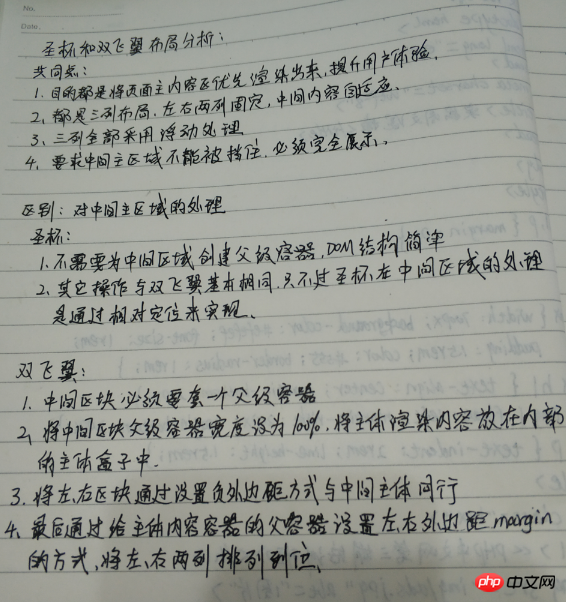 No.
Date.
圣杯和双飞翼布局分析:
共同点:
1. 目的都是将页面主内容区优先渲染出来,提升用户体验.
2. 都是三列布局,左右两列固定,中间内容自适应.
3、三列全部采用浮动处理
4. 要求中间主区域不能被挡住,必须完全展示.
区别: 对中间主区域的处理
圣杯:
1.不需要为中间区域创建父级容器,DOM结构简洁
2、其它操作与双飞翼基本相同,只不过圣杯左中间区域的处理
是通过相对定位来实现.
双飞翼:
1. 中间区块必须要套一个父级容器
2, 将中间区块父级容器宽度设为100%,将主体渲染内容放在内部
的主体盒子中.
3. 将左,右区块通过设置负外边距方式与中间主体同行
4. 最后通过给主体内容容器的父容器设置左右外边距margin
的方式,将左,右两列排列到位.
php 中文网